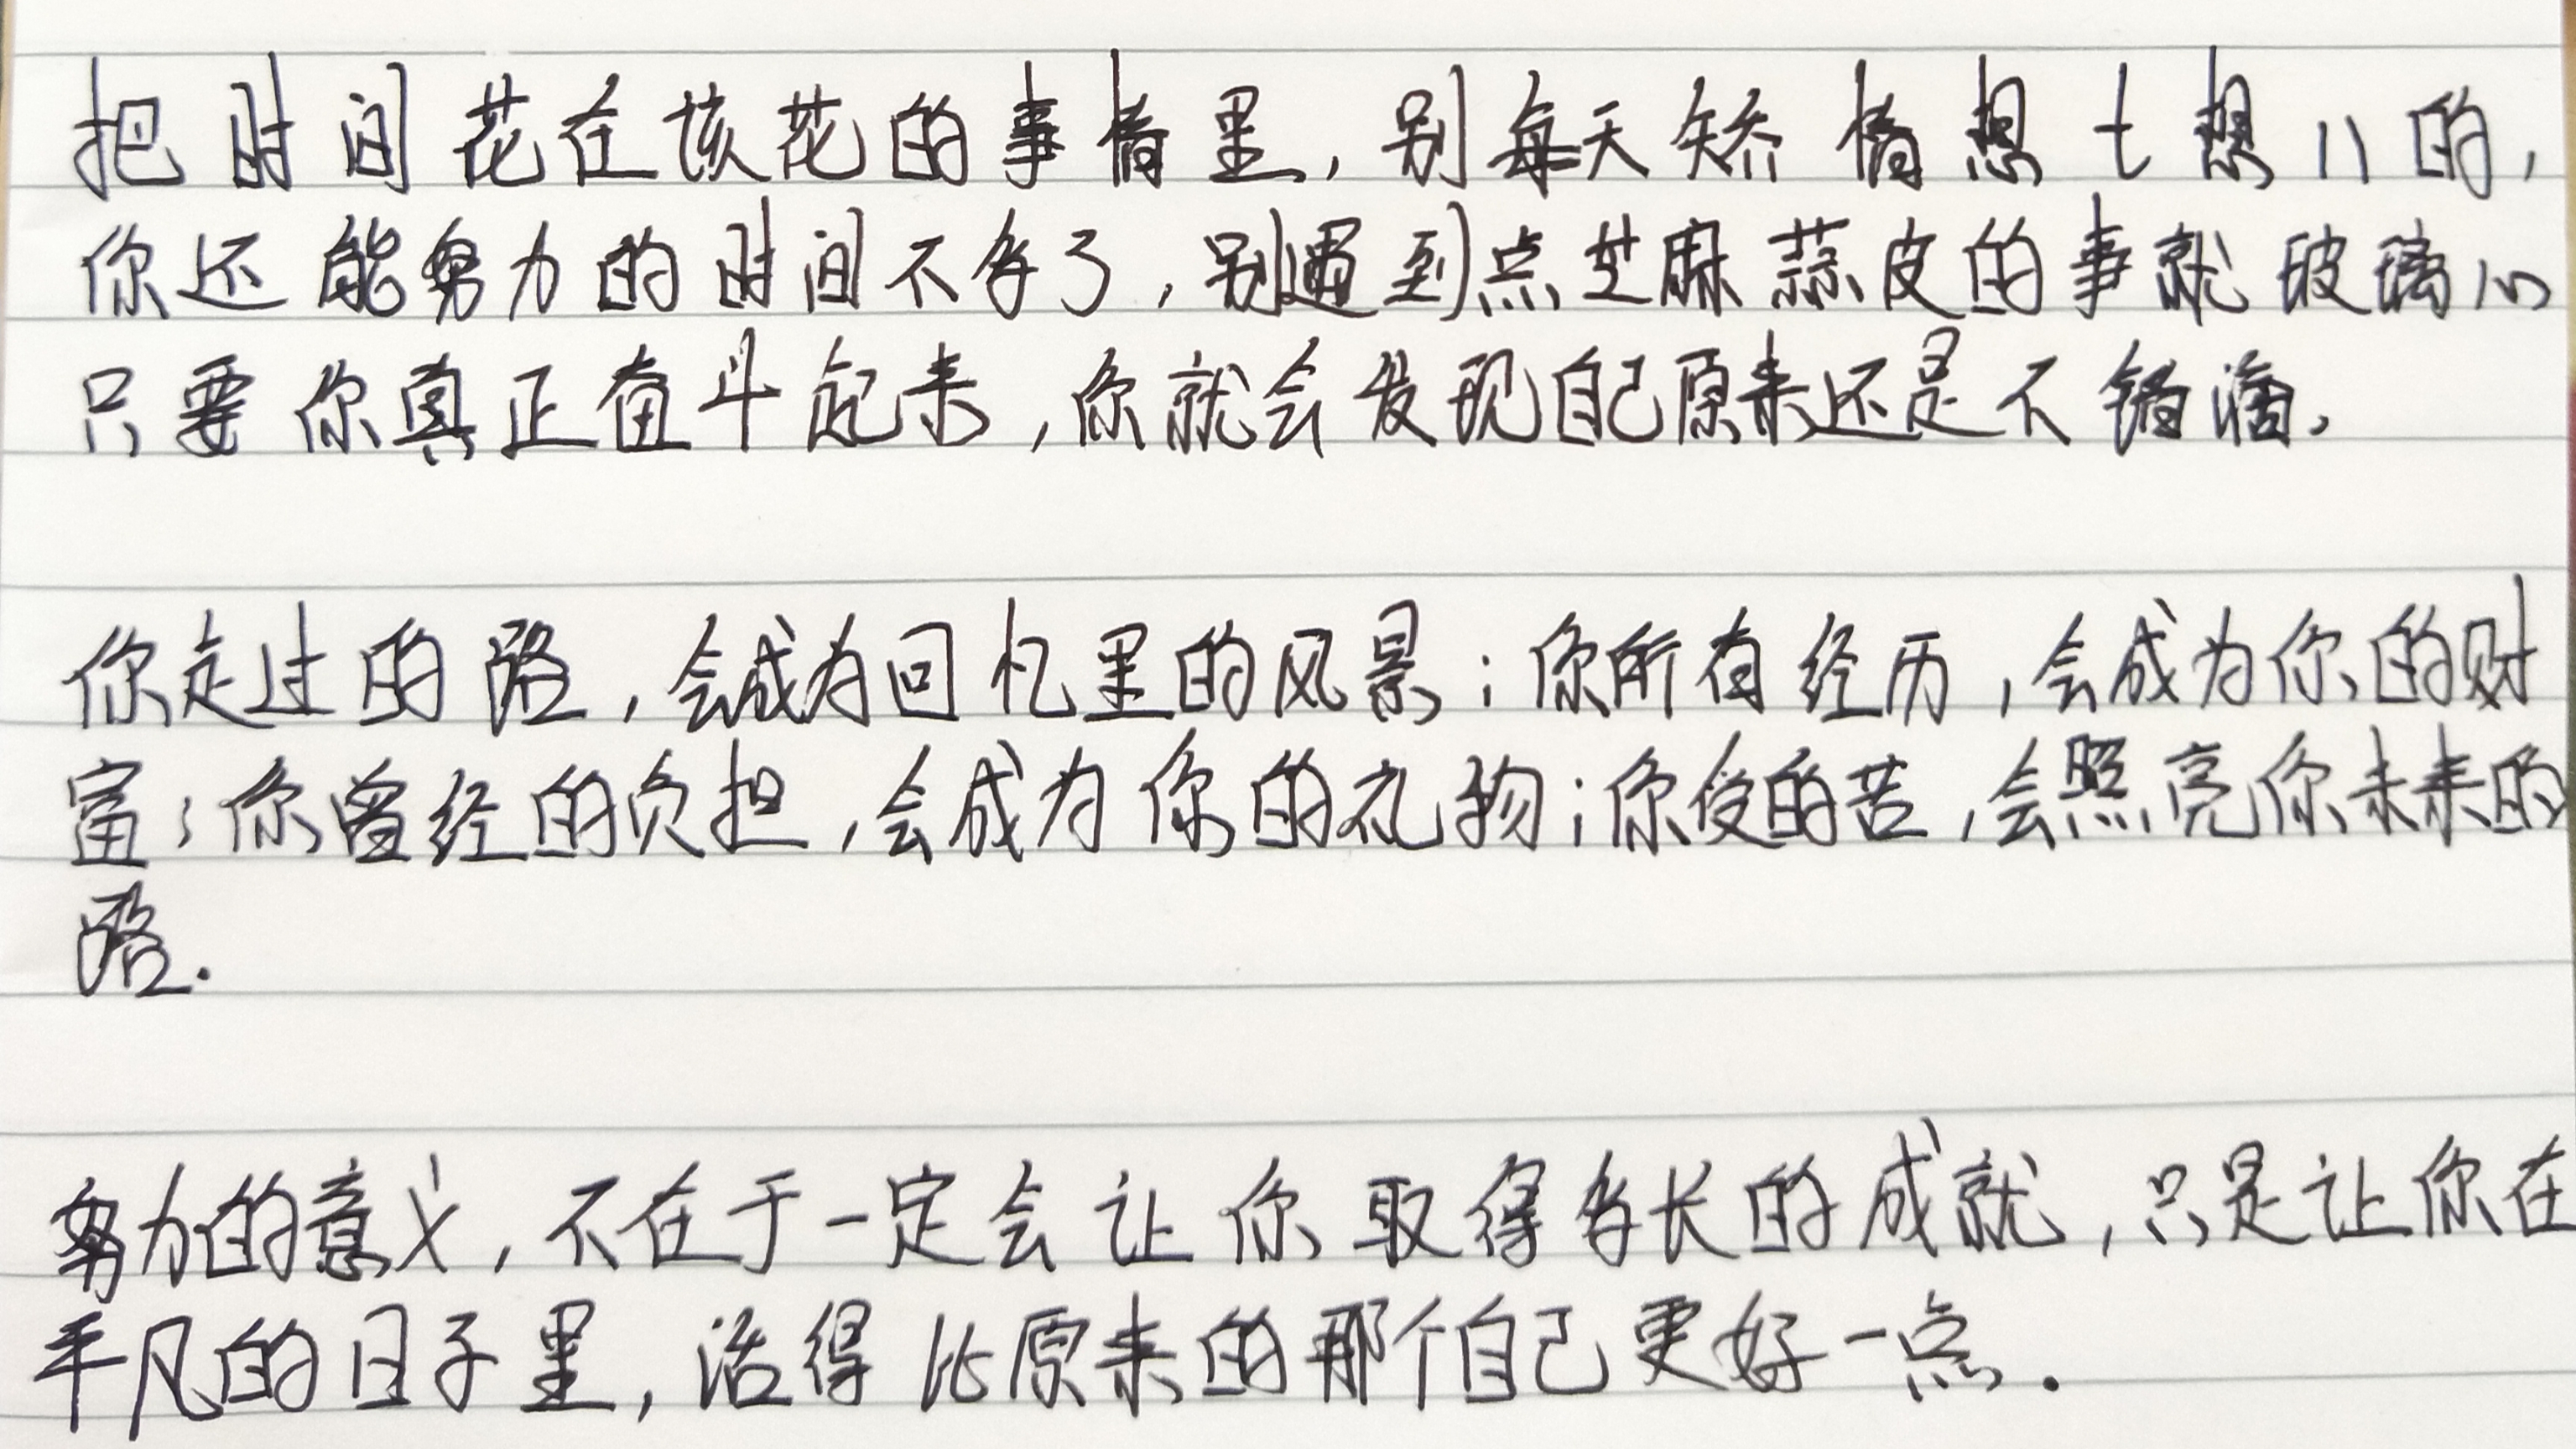 把时间花在该花的事情里，别每天矫情想七想八的，
你还能努力的时间不多了，别遇到点芝麻蒜皮的事就玻璃心
只要你真正奋斗起来，你就会发现自己原来还是不错滴。
你走过的路，会成为回忆里的风景；你所有经历，会成为你的财
富；你曾经的负担，会成为你的礼物；你受的苦，会照亮你未来的
路.
努力的意义，不在于一定会让你取得多长的成就，只是让你在
平凡的日子里，活得比原来的那个自己更好一点.